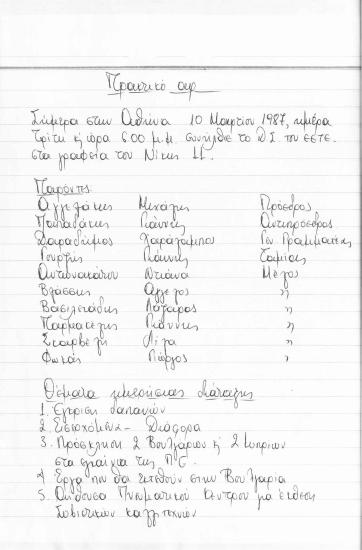 Πρακτικό αρ
Σήμερα στην Αθήνα 10 Μαρτίου 1987, ημέρα
Τρίτη κ ώρα 6.00 μ.μ. συνήλθε το Δ.Σ. του ΕΕΤΕ.
στα γραφεία του Νίκης 11.
Παρόντες
Αγγελάκης Μιχάλης Πρόεδρος
Παπαδάκης Γιάννης Αντιπρόεδρος
Δαραδήμος Χαράλαμπος Γεν. Γραμματέας
Γουρζής Γιάννης Ταμίας
Αντωνακάτου Ντιάνα Μέλος
Βλάσσης Άγγελος "
Βασιλειάδης Λάζαρος "
Παρμακέλης Γιάννης "
Σκαρβέλη Λίζα "
Φωκάς Γιώργος "
Θέματα ημερήσιας διάταξης
1. Έγκριση δαπανών
2. Εισερχόμενα - Διάφορα
3. Πρόσκληση 2 Βουλγάρων κ 2 Κυπρίων
στα εγκαίνια της
4 Έργα που θα εκτεθούν στην Βουλγαρία
5. Αίθουσα Πνευματικού Κέντρου για έκθεση
Σοβιετικών καλλιτεχνών